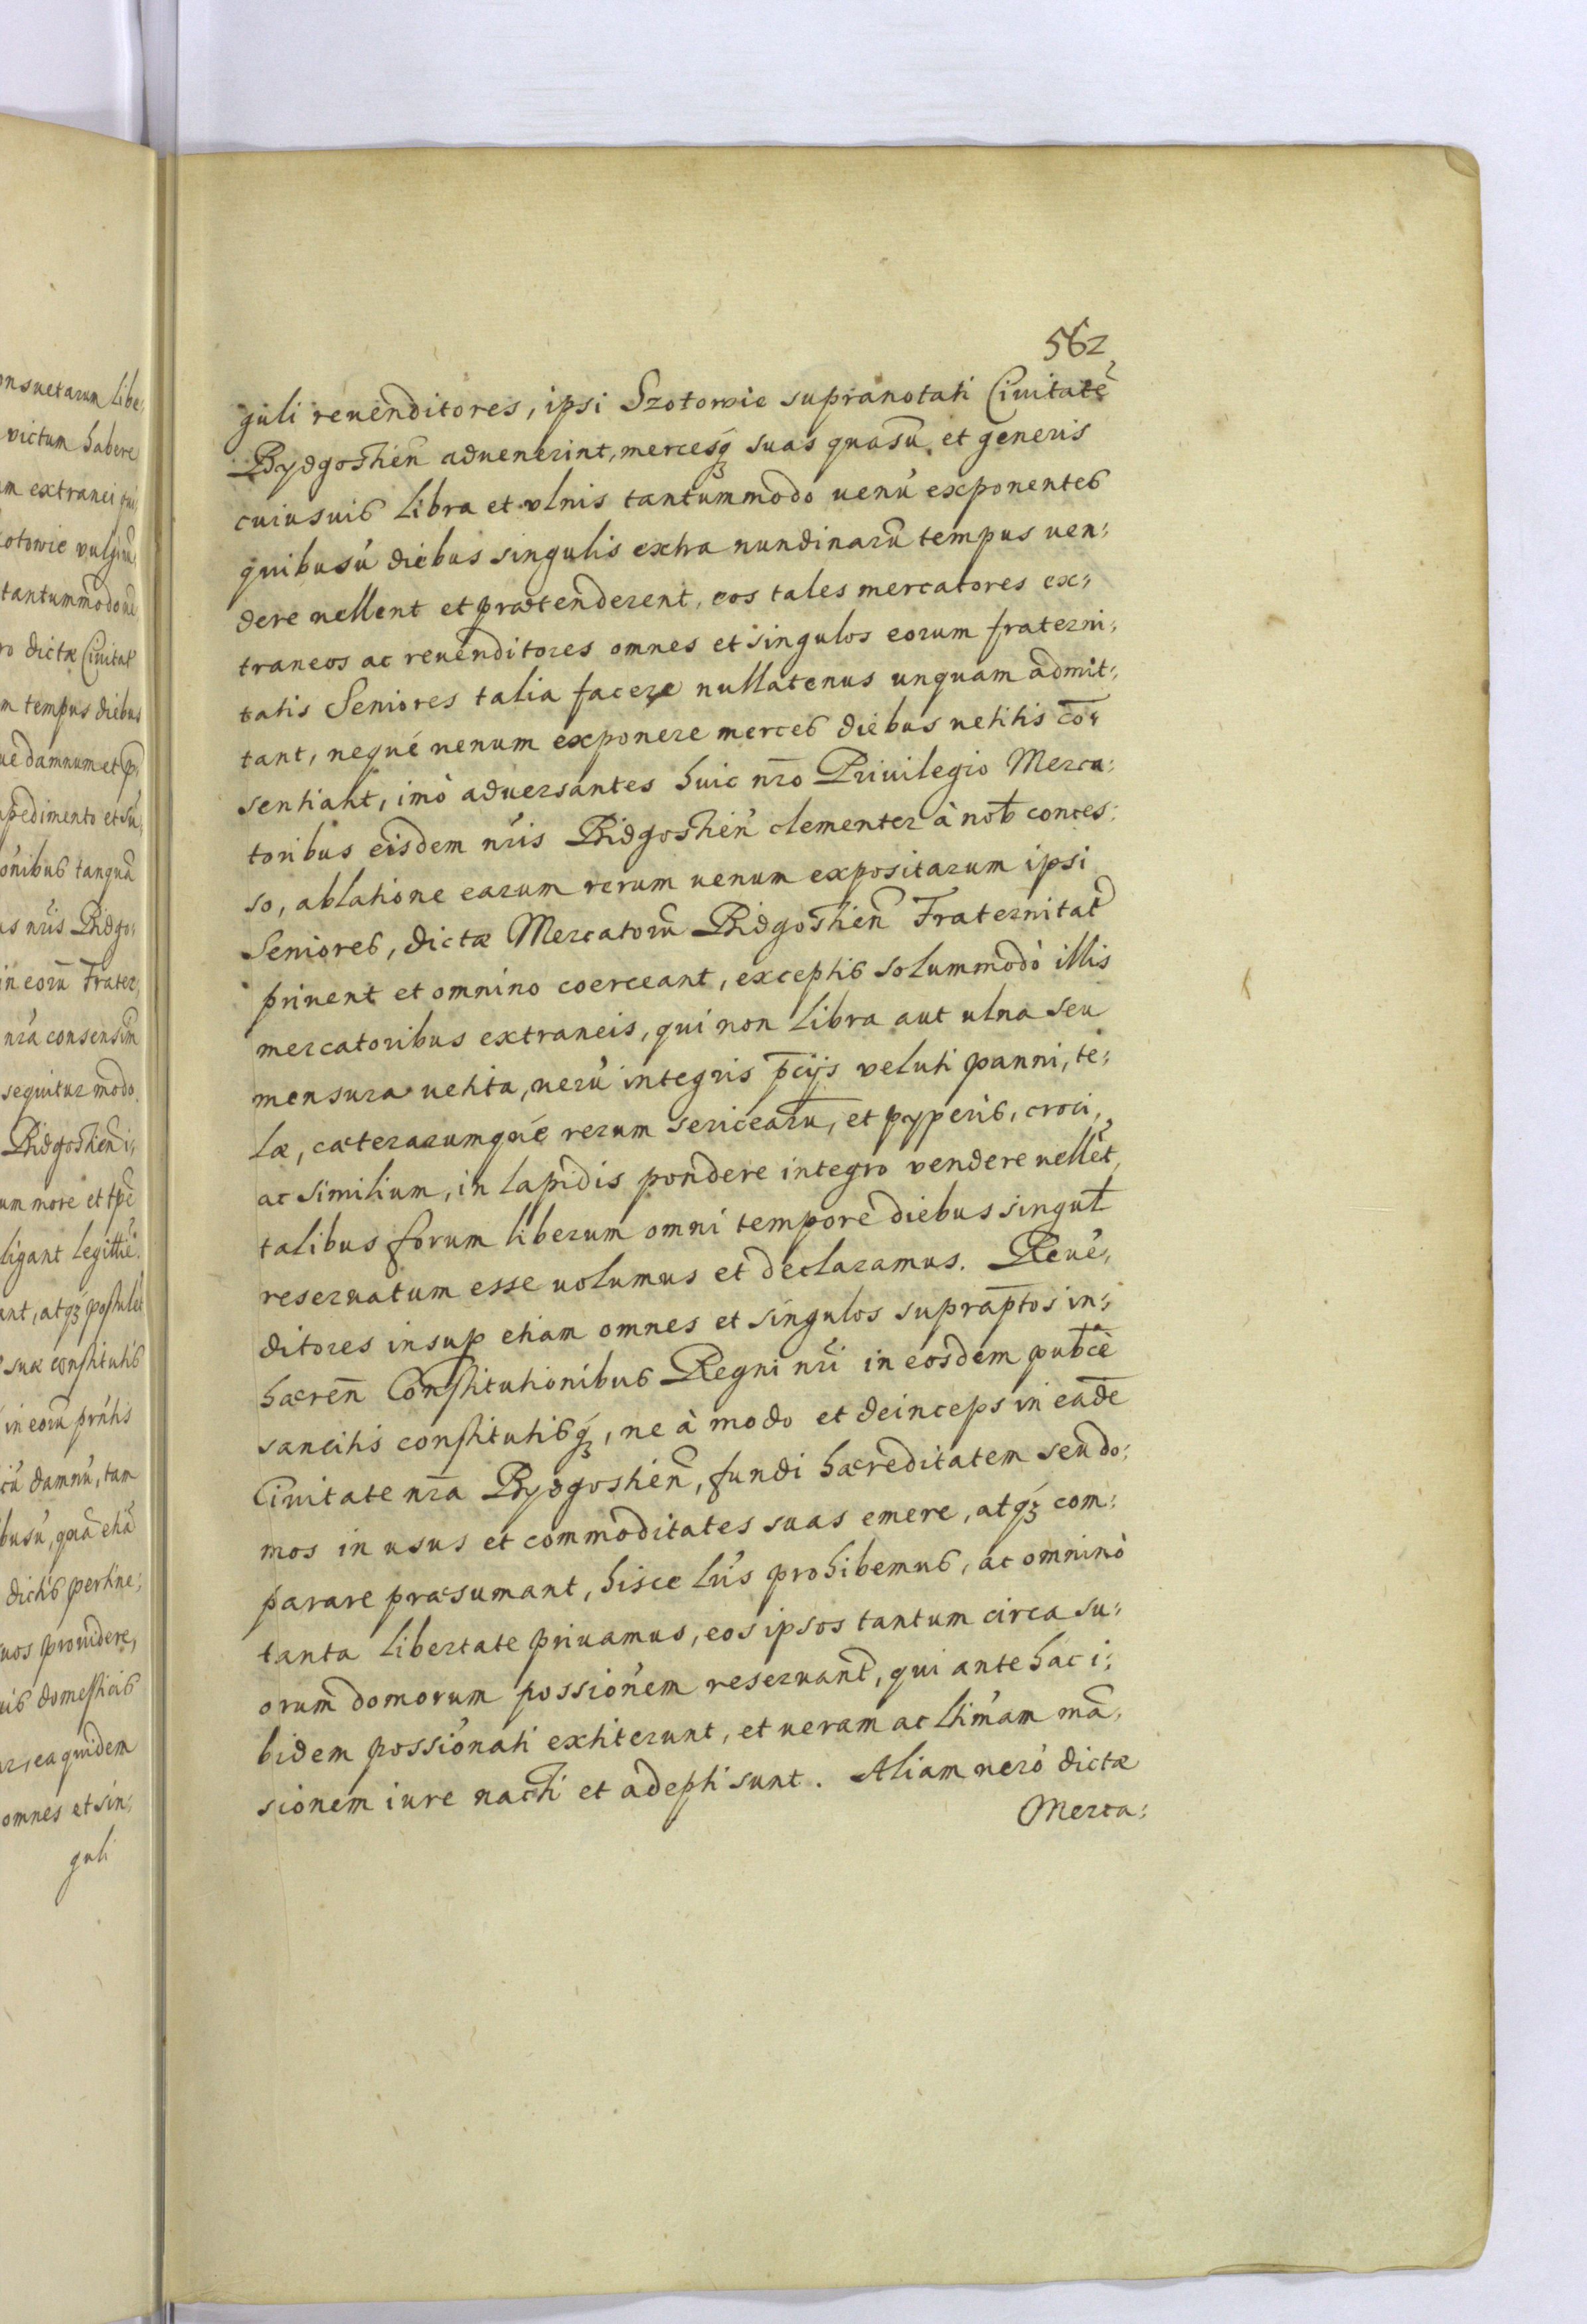 onsuetarum libe,
victum habere
m extranei qui,
otowie vulgiũ,
tantummodo ue
ro dictæ Ciuitat
m tempus diebus
ue damnum et p,
pedimento et su,
onibus tanquã
us nris Bidgo,
in eorũ Frater,
nra consensum
sequitur modo.
Bidgostien i,
um more et tpe
ligant legittie.
ant, atq₃ postulet
suæ constitutis
in eorũ prntis
cũ damnũ, tam
busũ, quã etiã
dictis pertine,
uos prouidere,
uis domesticis
ar, ea quidem
omnes et sin,
guli
562
guli reuenditores, ipsi Szotowie supranotati Ciuitatẽ
Bydgostien̄ aduenerint, mercesq₃ suas quasũ et generis
cuiusuis libra et vlnis tantummodo uenũ exponentes
quibusũ diebus singulis extra nundinarũ tempus uen,
dere uellent et prætenderent, eos tales mercatores ex,
traneos ac reuenditores omnes et singulos eorum fraterni,
tatis Seniores talia facere nullatenus unquam admit,
tant, neque uenum exponere merces diebus uetitis cō,
sentiant, imò aduersantes huic nr̄o Priuilegio Merca,
toribus eisdem nr̃is Bidgostien̄ clementer à nob conces,
so, ablatione earum rerum uenum expositarum ipsi
Seniores, dictæ Mercatorũ Bidgostien̄ Fraternitat
priuent et omnino coerceant, exceptis solummodò illis
mercatoribus extraneis, qui non libra aut ulna seu
mensura uetita, uerũ integris p̄cijs veluti panni, te,
læ, cæterarumque rerum sericearũ, et pyperis, croci,
ac similium, in lapidis pondere integro vendere uellẽt,
talibus forum liberum omni tempore diebus singul
reseruatum esse uolumus et declaramus. Reuẽ,
ditores insup etiam omnes et singulos suprap̄tos in,
hæren̄ Constitutionibus Regni nr̃i in eosdem pub̄cè
sancitis constitutisq₃, ne à modo et deinceps in eadē
Ciuitate nr̄a Bydgostien̄, fundi hæreditatem seu do,
mos in usus et commoditates suas emere, atq₃ com,
parare præsumant, hisce lr̃is prohibemus, ac omninò
tanta libertate priuamus, eos ipsos tantum circa su,
orum domorum possionem reseruand, qui ante hac i,
bidem possionati extiterunt, et ueram ac ltimam mã,
sionem iure nacti et adepti sunt. Aliam uerò dictæ
Merca,